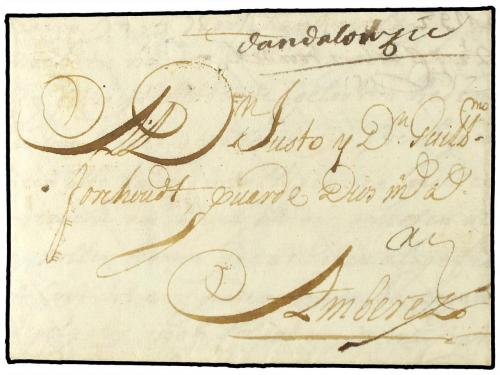 dandalouzie
A Dn Justo y Dn Guillmo
forchoudt, guarde Dios ms as
Amberez